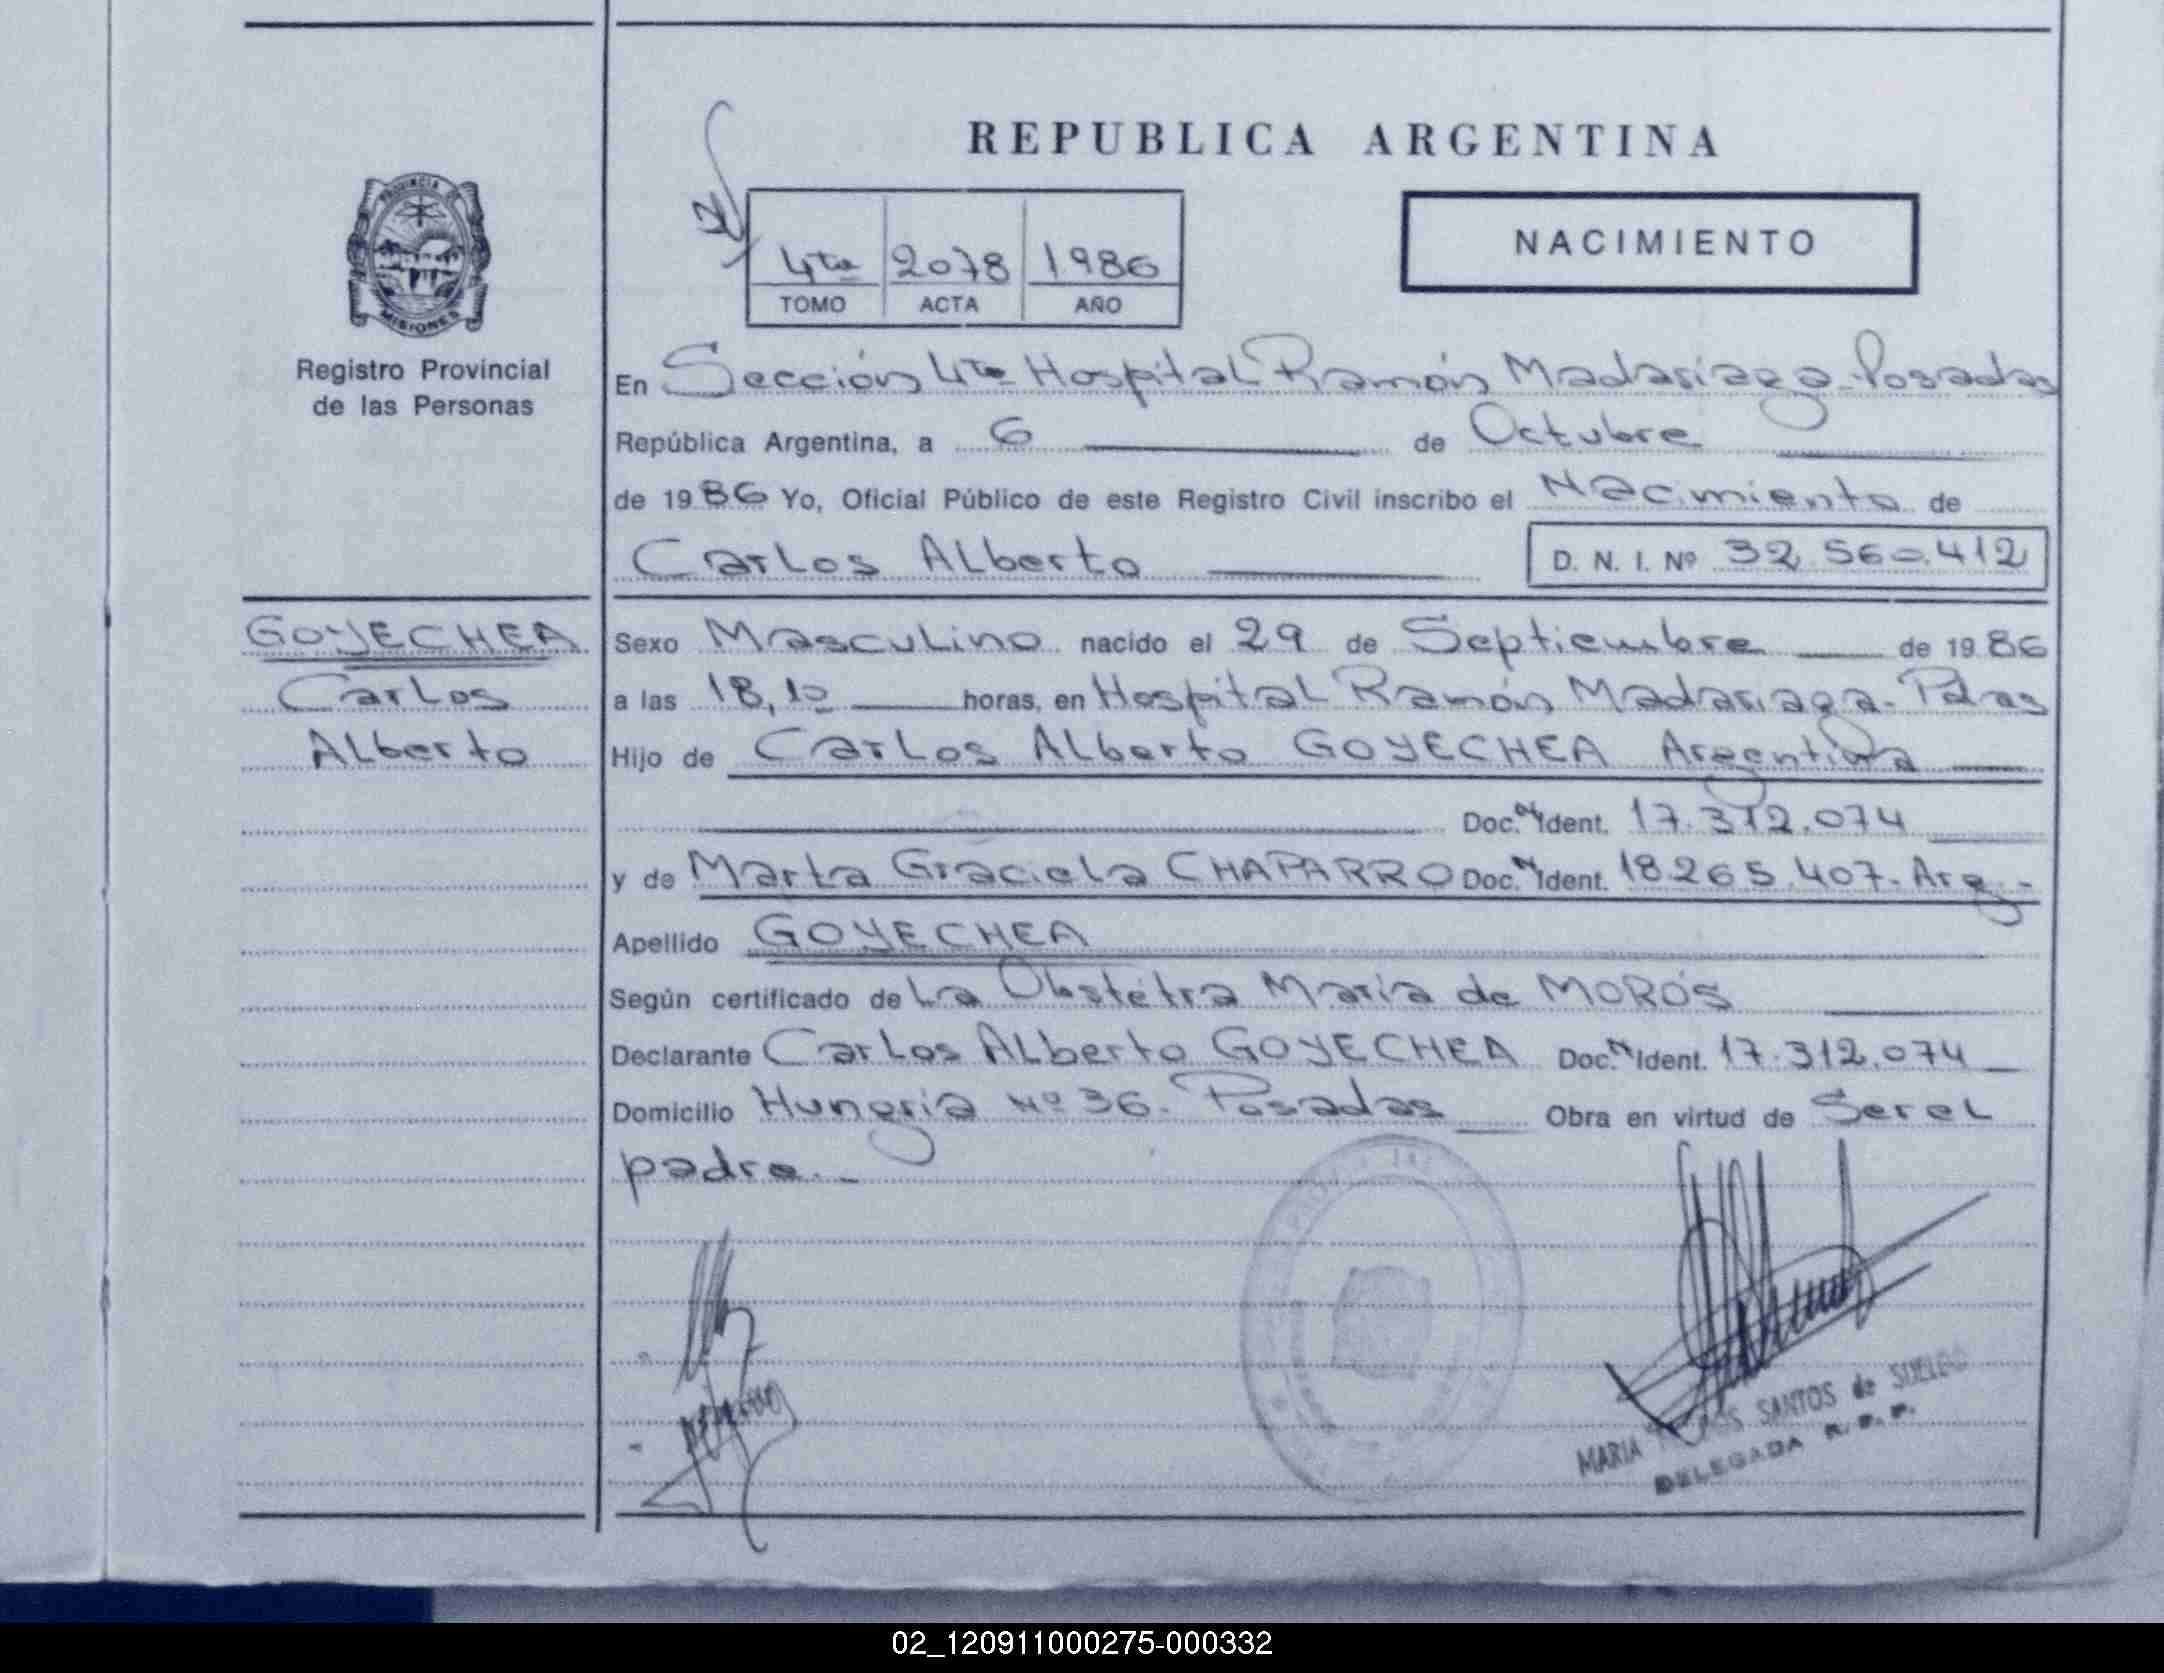 REPUBLICA ARGENTINA
NACIMIENTO
4ta 2078 1986
TOMO ACTA AÑO
PROVINCIA DE
MISIONES
Registro Provincial
de las Personas
En Sección 4ta Hospital Ramón Madariaga-Posadas
República Argentina, a 6 de Octubre
de 1986 Yo, Oficial Público de este Registro Civil inscribo el Nacimiento de
Carlos Alberto
D. N. I. Nº 32.560.412
GOYECHEA
Carlos
Alberto
Sexo Masculino nacido el 29 de Septiembre de 1986
a las 18,10 horas, en Hospital Ramón Madariaga- Pdas
Hijo de Carlos Alberto GOYECHEA Argentina
Doc. Ident. 17.312.074
y de Marta Graciela CHAPARRO Doc. Ident. 18.265.407- Arg.-
Apellido GOYECHEA
Según certificado de La Obstétra María de MORÓS
Declarante Carlos Alberto GOYECHEA Doc. Ident. 17.312.074
Domicilio Hungría Nº 36. Posadas Obra en virtud de Ser el
padre.-
MARIA SANTOS de SUELDO
DELEGADA R. P. P.
02_120911000275-000332